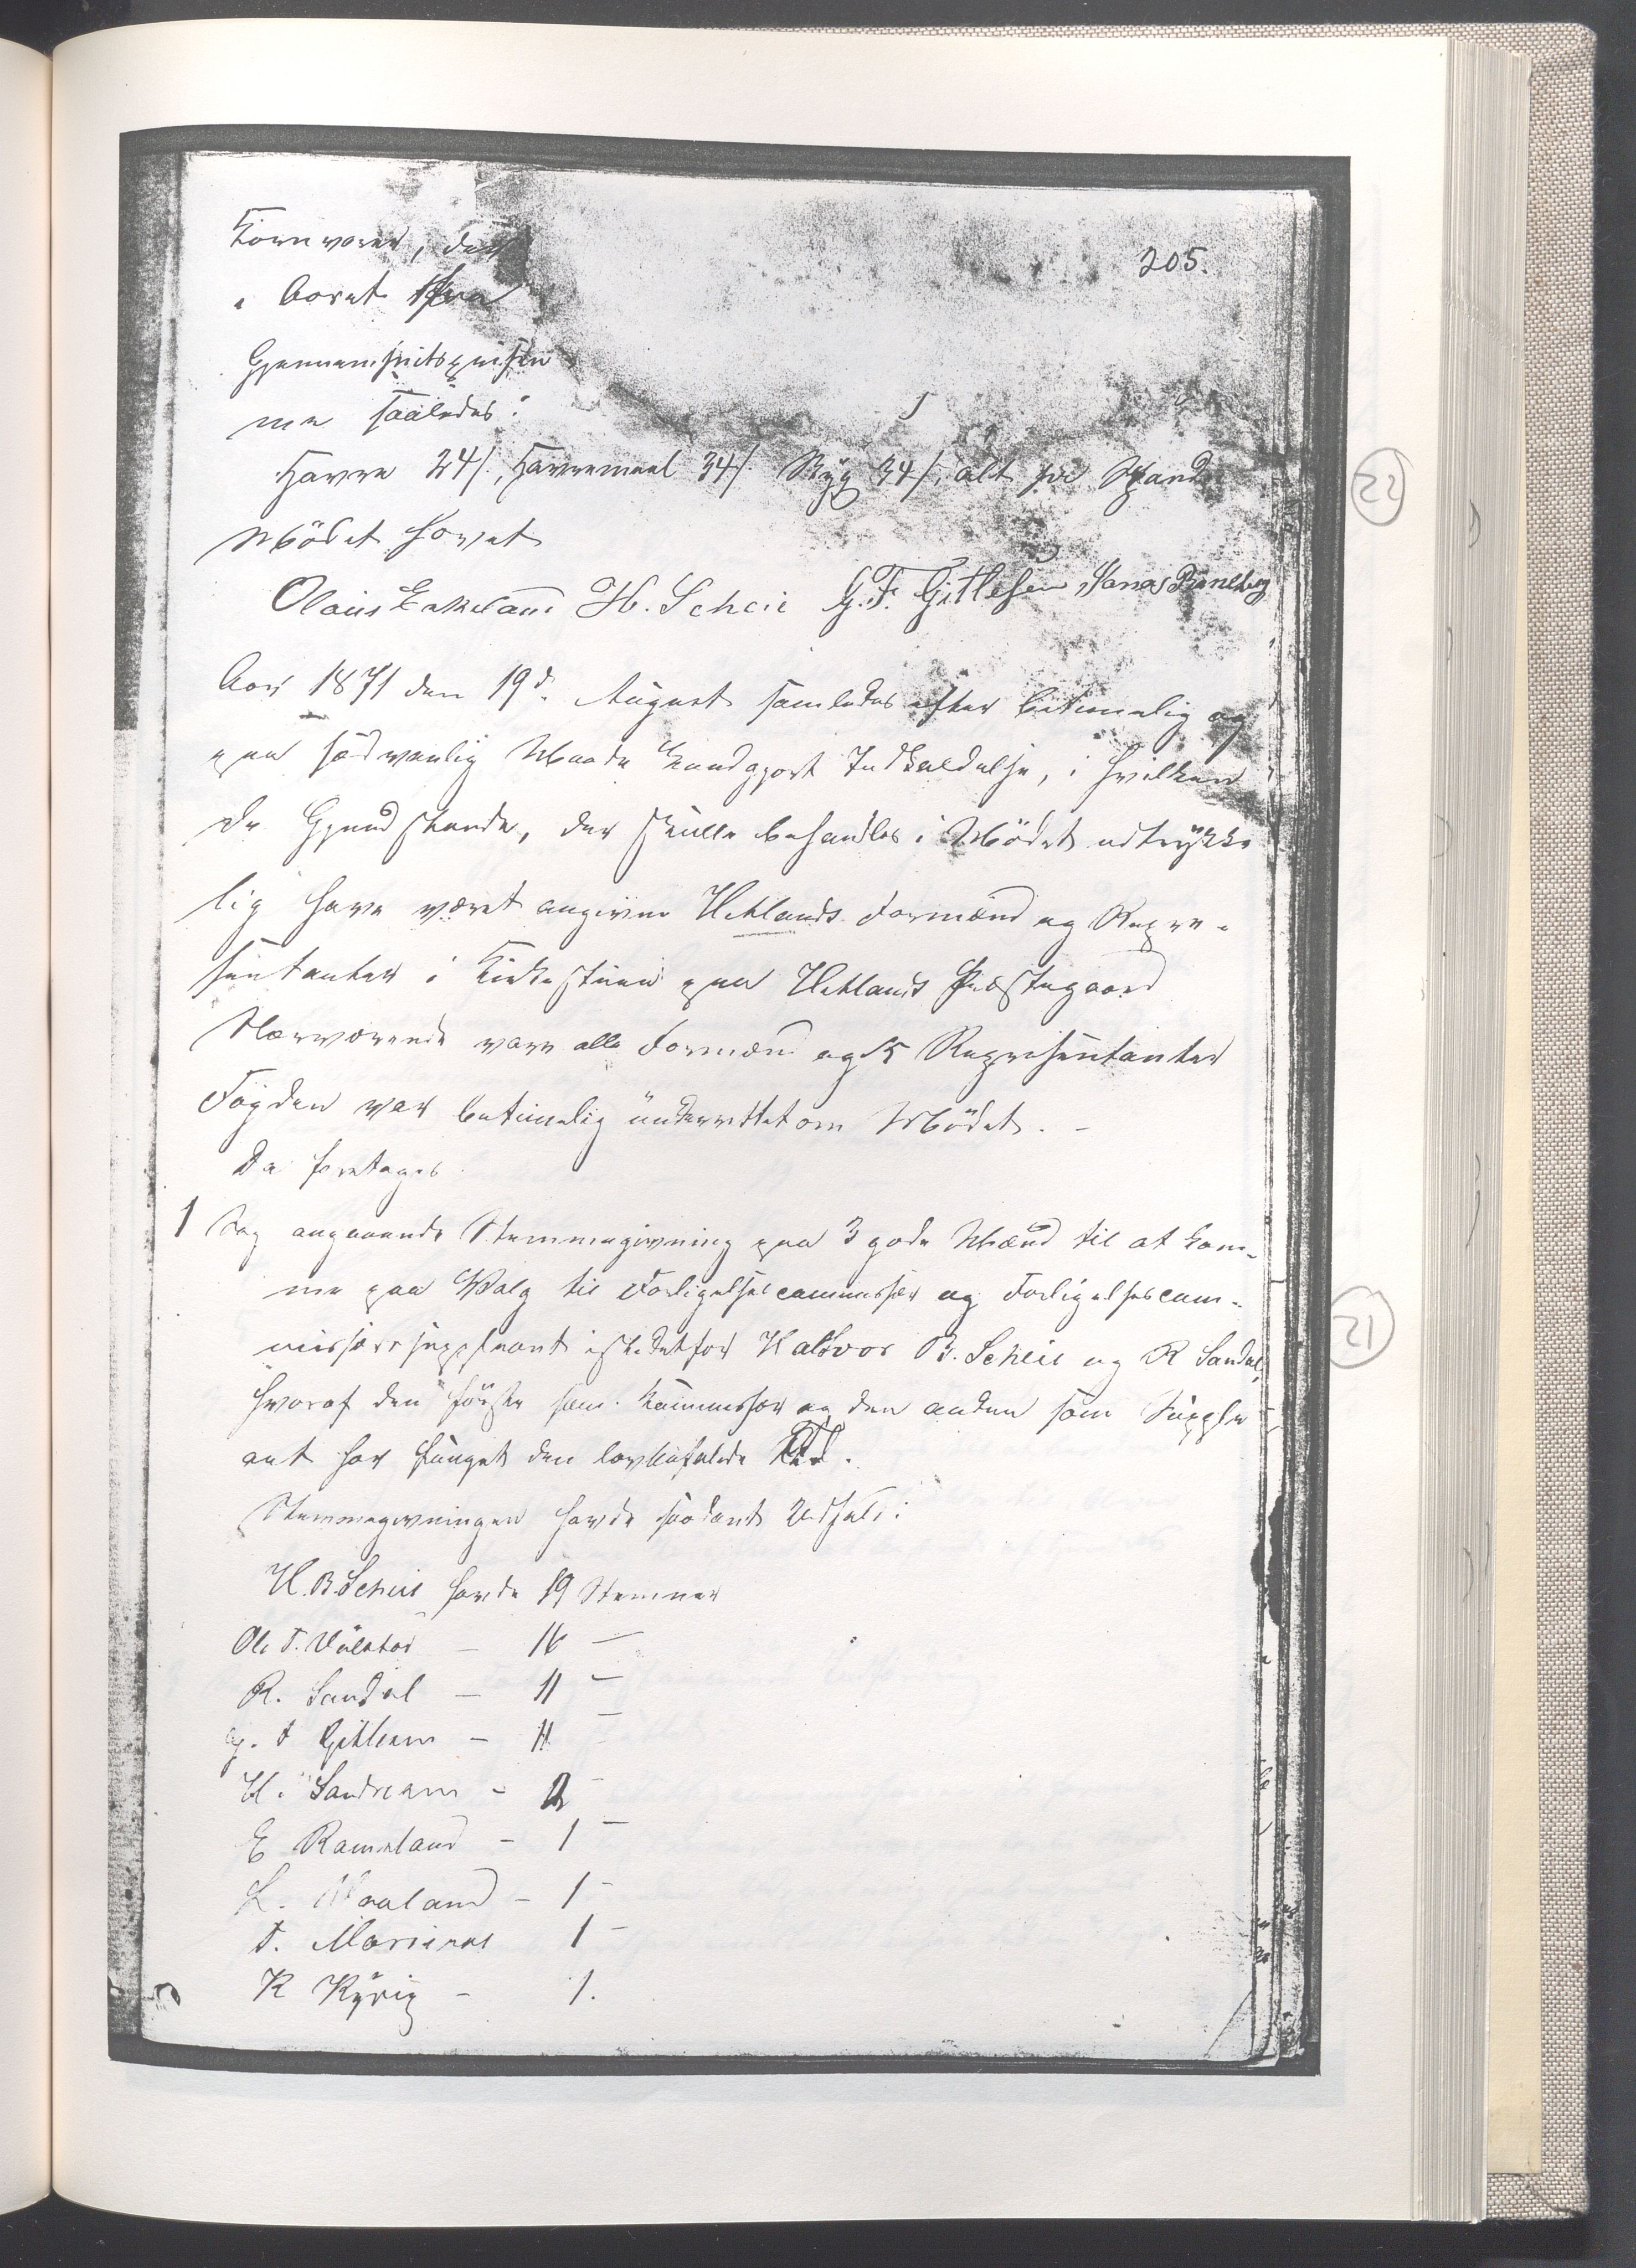 205.
Kornvarer, der
i Aaret
Gjennemsnitspriser
ne saaledes:
Havre 24/, Havremeel 34/ Byg 34/, alt pr Spand
Mödet hævet
Olaus Eskeland H. Scheie G. F. Gitlesen Jonas
22
Aar 1871 den 19d August samledes efter betimelig og
paa sædvanlig Maade kundgjort Indkaldelse, i hvilken
de Gjendstande, der skulle behandles i Mödet udtrykke
lig have været angivne Hetlands Formænd og Repræ-
sentanter i Kirkestuen paa Hetlands Præstegaard
Nærværende vare alle Formænd og 15 Representanter
Fogden var betimelig underrettet om Mödet. -
Da foretoges
1 Sag angaaende Stemmegivning paa 3 gode Mænd til at kom-
me paa Valg til Forligelsescommissær og Forligelsescom-
21
missærsuppleant istedetfor Halvor B. Scheie og R Sandal,
hvoraf den förste som Kommissær og den anden som Supple
ant har funget den lovbefalede Tid.
Stemmegivningen havde saadant Udfald:
H. B Scheie havde 19 Stemmer
Ole T. — 16 —
R. Sandal — 11 —
G. F Gitlesen - 11 —
H. - 2 -
E Ramsland - 1 —
L. - 1 -
T. 1 -
K Kÿvig - 1.